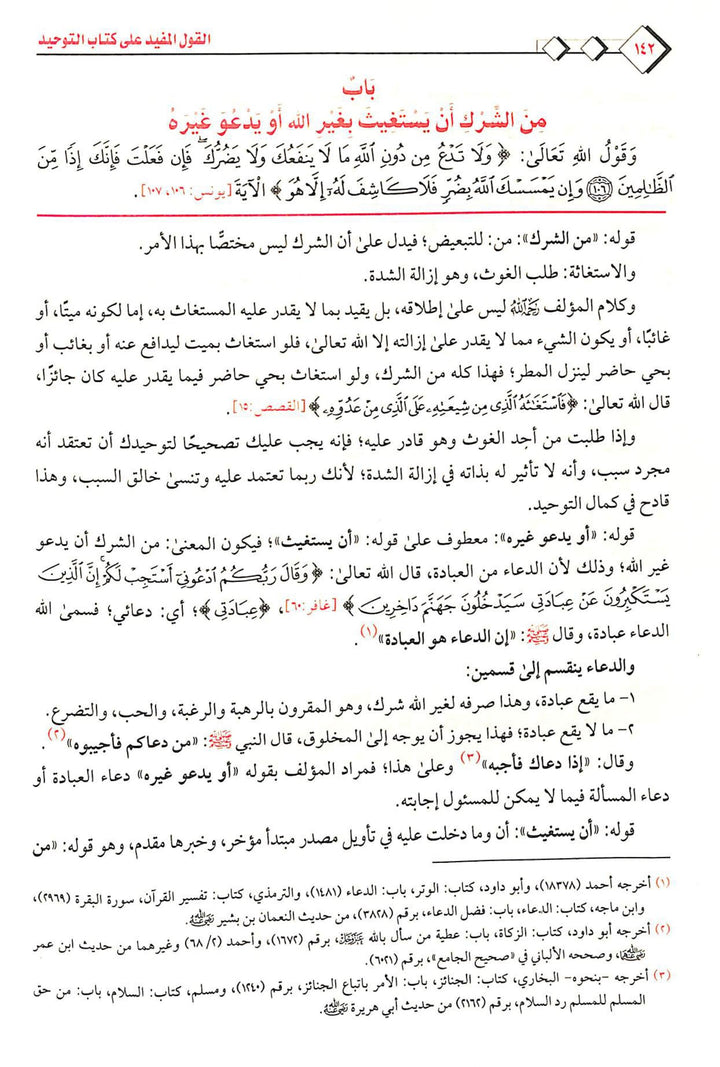 ١٤٢
القول المفيد على كتاب التوحيد
بَابٌ
مِنَ الشِّرْكِ أَنْ يَسْتَغِيثَ بِغَيْرِ اللهِ أَوْ يَدْعُوَ غَيْرَهُ
وَقَوْلُ اللهِ تَعَالَىٰ: ﴿ وَلَا تَدْعُ مِن دُونِ ٱللَّهِ مَا لَا يَنفَعُكَ وَلَا يَضُرُّكَ ۖ فَإِن فَعَلْتَ فَإِنَّكَ إِذًا مِّنَ
ٱلظَّـٰلِمِينَ (١٠٦) وَإِن يَمْسَسْكَ ٱللَّهُ بِضُرٍّ فَلَا كَاشِفَ لَهُۥٓ إِلَّا هُوَ ﴾ الْآيَةَ [يونس: ١٠٦، ١٠٧].
قوله: «من الشرك»: من: للتبعيض؛ فيدل علىٰ أن الشرك ليس مختصًّا بهذا الأمر.
والاستغاثة: طلب الغوث، وهو إزالة الشدة.
وكلام المؤلف رَحِمَهُ ٱللَّهُ ليس علىٰ إطلاقه، بل يقيد بما لا يقدر عليه المستغاث به، إما لكونه ميتًا، أو
غائبًا، أو يكون الشيء مما لا يقدر علىٰ إزالته إلا الله تعالىٰ، فلو استغاث بميت ليدافع عنه أو بغائب أو
بحي حاضر لينزل المطر؛ فهذا كله من الشرك، ولو استغاث بحي حاضر فيما يقدر عليه كان جائزًا،
قال الله تعالىٰ: ﴿فَٱسْتَغَـٰثَهُ ٱلَّذِى مِن شِيعَتِهِۦ عَلَى ٱلَّذِى مِنْ عَدُوِّهِۦ﴾ [القصص: ١٥].
وإذا طلبت من أحد الغوث وهو قادر عليه؛ فإنه يجب عليك تصحيحًا لتوحيدك أن تعتقد أنه
مجرد سبب، وأنه لا تأثير له بذاته في إزالة الشدة؛ لأنك ربما تعتمد عليه وتنسىٰ خالق السبب، وهذا
قادح في كمال التوحيد.
قوله: «أو يدعو غيره»: معطوف علىٰ قوله: «أن يستغيث»؛ فيكون المعنىٰ: من الشرك أن يدعو
غير الله؛ وذلك لأن الدعاء من العبادة، قال الله تعالىٰ: ﴿ وَقَالَ رَبُّكُمُ ٱدْعُونِىٓ أَسْتَجِبْ لَكُمْ ۚ إِنَّ ٱلَّذِينَ
يَسْتَكْبِرُونَ عَنْ عِبَادَتِى سَيَدْخُلُونَ جَهَنَّمَ دَاخِرِينَ ﴾ [غافر: ٦٠]، ﴿عِبَادَتِى﴾؛ أي: دعائي؛ فسمىٰ الله
الدعاء عبادة، وقال ﷺ: «إن الدعاء هو العبادة»(١).
والدعاء ينقسم إلىٰ قسمين:
١- ما يقع عبادة، وهذا صرفه لغير الله شرك، وهو المقرون بالرهبة والرغبة، والحب، والتضرع.
٢- ما لا يقع عبادة؛ فهذا يجوز أن يوجه إلىٰ المخلوق، قال النبي ﷺ: «من دعاكم فأجيبوه»(٢).
وقال: «إذا دعاك فأجبه»(٣) وعلىٰ هذا؛ فمراد المؤلف بقوله «أو يدعو غيره» دعاء العبادة أو
دعاء المسألة فيما لا يمكن للمسئول إجابته.
قوله: «أن يستغيث»: أن وما دخلت عليه في تأويل مصدر مبتدأ مؤخر، وخبرها مقدم، وهو قوله: «من
(١) أخرجه أحمد (١٨٣٧٨)، وأبو داود، كتاب: الوتر، باب: الدعاء (١٤٨١)، والترمذي، كتاب: تفسير القرآن، سورة البقرة (٢٩٦٩)،
وابن ماجه، كتاب: الدعاء، باب: فضل الدعاء، برقم (٣٨٢٨)، من حديث النعمان بن بشير رَضِيَ ٱللَّهُ عَنْهُ.
(٢) أخرجه أبو داود، كتاب: الزكاة، باب: عطية من سأل بالله عَزَّوَجَلَّ، برقم (١٦٧٢)، وأحمد (٦٨/٢) وغيرهما من حديث ابن عمر
رَضِيَ ٱللَّهُ عَنْهُ، وصححه الألباني في «صحيح الجامع»، برقم (٦٠٢١).
(٣) أخرجه -بنحوه- البخاري، كتاب: الجنائز، باب: الأمر باتباع الجنائز، برقم (١٢٤٠)، ومسلم، كتاب: السلام، باب: من حق
المسلم للمسلم رد السلام، برقم (٢١٦٢) من حديث أبي هريرة رَضِيَ ٱللَّهُ عَنْهُ.